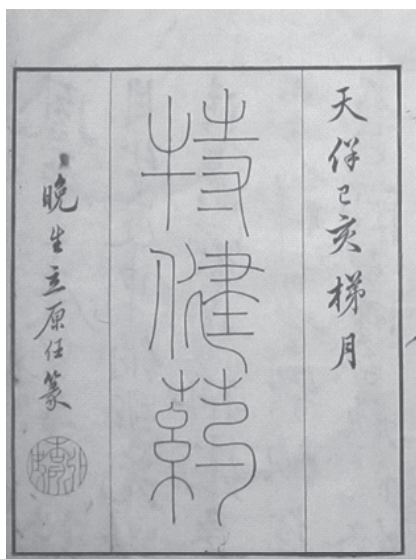 天保己亥梯月
特健葯
晩生立原任篆